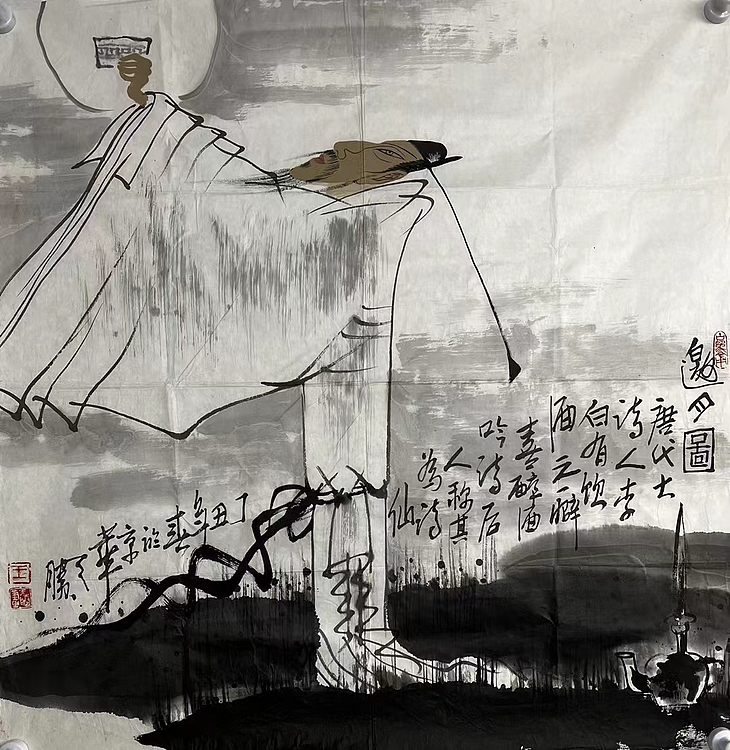 邀月圖
唐代大
诗人李
白有饮
酒之癖
喜醉酒
吟诗后
人称其
為诗
仙
丁丑年春於京華
王